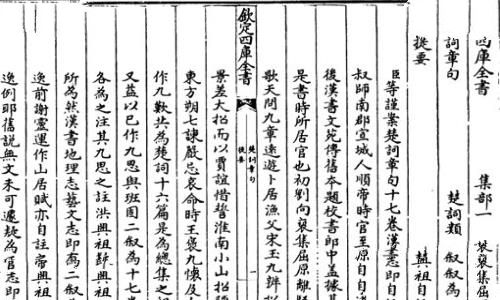 四庫全書 集部一
詞章句 楚詞類
提要
臣等謹案楚詞章句十七卷漢
叔師南郡宣城人順帝時官至
後漢書文苑傳舊本題校書郎中盖據其
是書時所居官也初劉向裒集屈原離騷
歌天問九章遠遊卜居漁父宋玉九辨招
欽定四庫全書
楚詞章句
提要
景差大招而以賈誼惜誓淮南小山招隱
東方朔七諫嚴忌哀命時王褒九懐及
作九歎共為楚詞十六篇是為總集之
又益以已作九思與班固二叙為十七
各為之注其九思之註洪興祖
所為然漢書地理志藝文志即
逸前謝靈運作山居賦亦自註
逸例耶舊說無文未可遽疑為